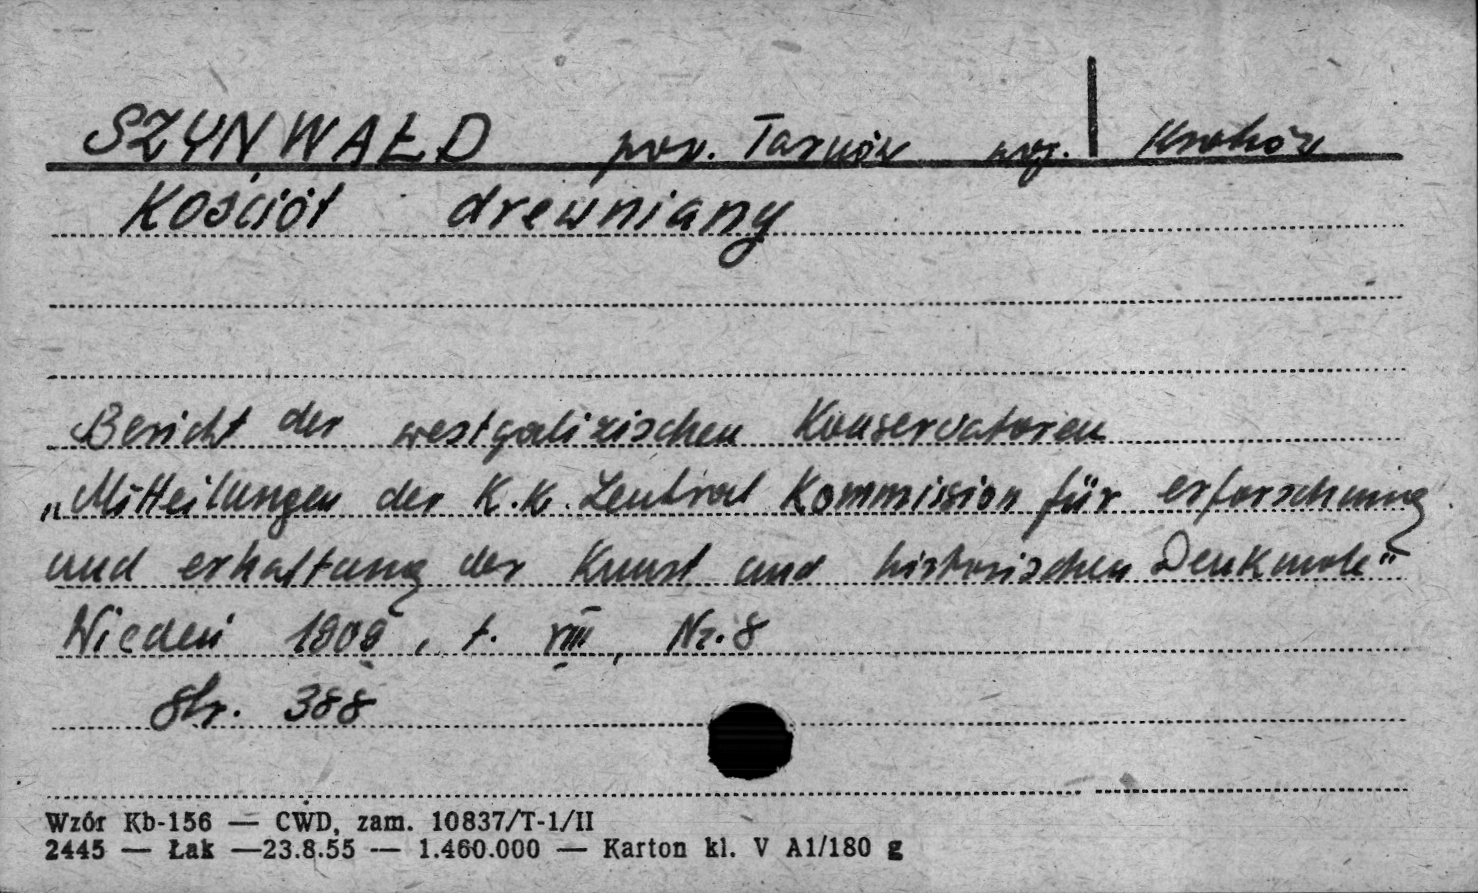 SZYNWAŁD pow. Tarnów woj. Kraków
Kościół drewniany
Bericht der westgalizischen Konservatoren
„Mitteilungen der K.K. Zentral Kommission für erforschung
und erhaltung der Kunst und historischen Denkmale"
Wiedeń 1909, t. VIII, Nr. 8
Str. 388
Wzór Kb-156 — CWD, zam. 10837/T-1/II
2445 — Łak —23.8.55 — 1.460.000 — Karton kl. V A1/180 g